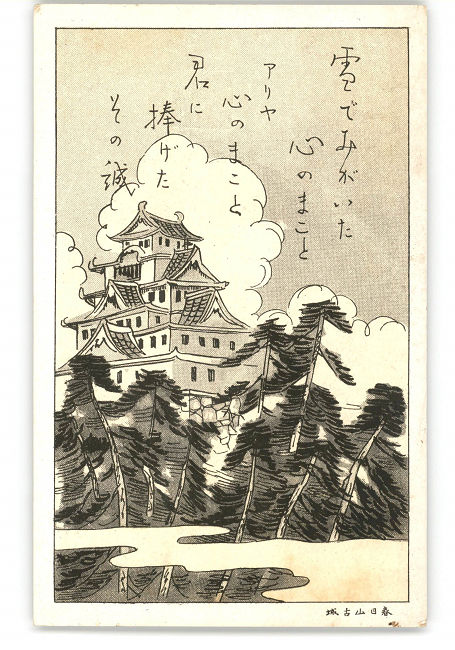 雪でみがいた
心のまこと
アリヤ
心のまこと
君に
捧げた
その誠
春日山古城